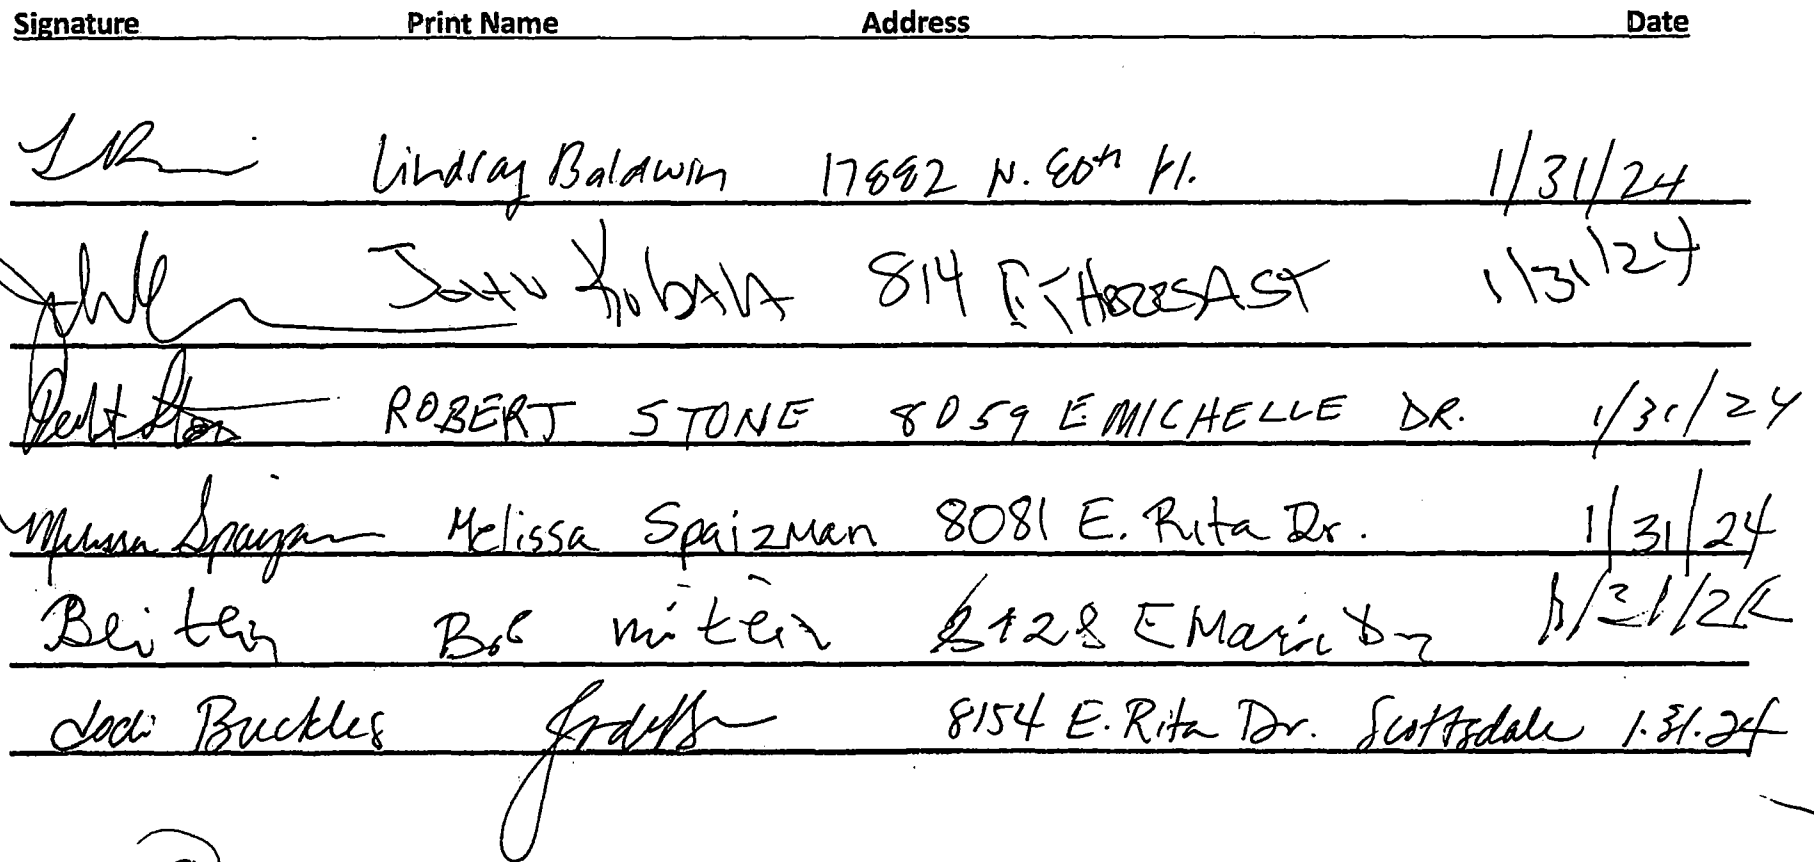 Signature Print Name Address Date
Lindsay Baldwin 17882 N. 80th Pl. 1/31/24
John Kubala 814 E. THERESA ST 1/31/24
ROBERT STONE 8059 E MICHELLE DR. 1/31/24
Melissa Spaizman 8081 E. Rita Dr. 1/31/24
Bob 8128 E Marie Dr
Jodi Buckles 8154 E. Rita Dr. Scottsdale 1.31.24